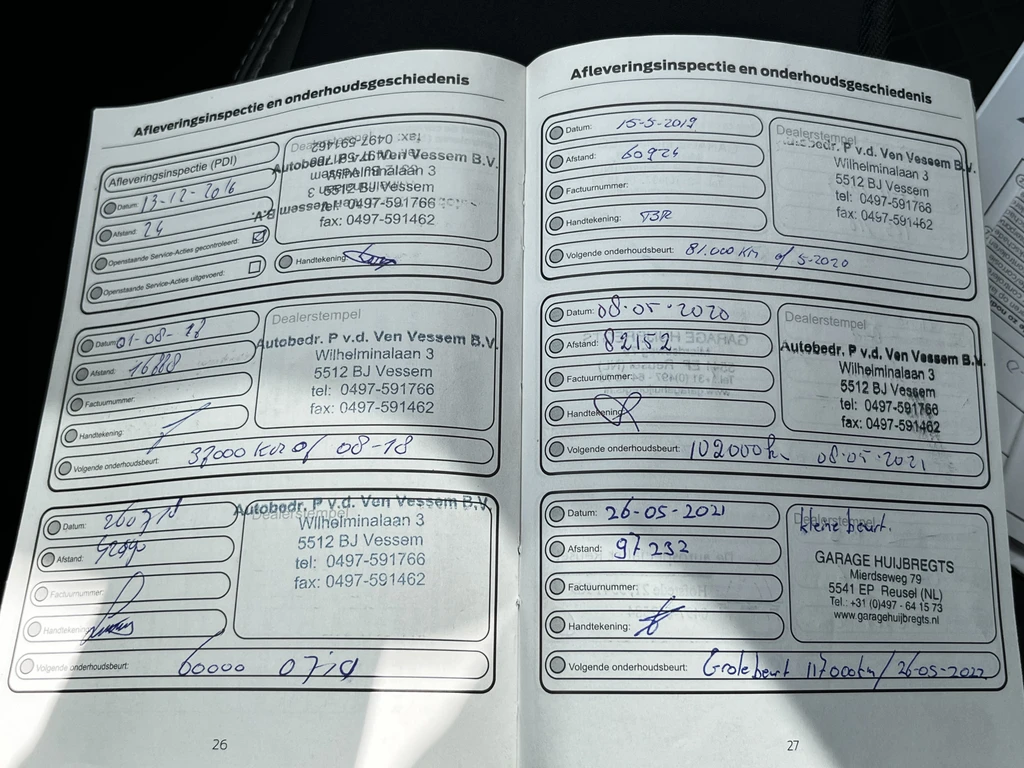 Afleveringsinspectie en onderhoudsgeschiedenis
Afleveringsinspectie (PDI)
Datum: 13-12-2016
Afstand: 24
Openstaande Service-Acties gecontroleerd:
Openstaande Service-Acties uitgevoerd:
Dealerstempel
Autobedr. P v.d. Ven Vessem B.V.
Wilhelminalaan 3
5512 BJ Vessem
tel: 0497-591766
fax: 0497-591462
Handtekening:
Datum: 01-08-
Afstand:
Factuurnummer:
Handtekening:
Volgende onderhoudsbeurt: 37000 km of 08-18
Dealerstempel
Autobedr. P v.d. Ven Vessem B.V.
Wilhelminalaan 3
5512 BJ Vessem
tel: 0497-591766
fax: 0497-591462
Datum: 260718
Afstand:
Factuurnummer:
Handtekening:
Volgende onderhoudsbeurt: 60000 0719
Dealerstempel
Autobedr. P v.d. Ven Vessem B.V.
Wilhelminalaan 3
5512 BJ Vessem
tel: 0497-591766
fax: 0497-591462
26
Afleveringsinspectie en onderhoudsgeschiedenis
Datum: 15-5-2019
Afstand: 60924
Factuurnummer:
Handtekening:
Volgende onderhoudsbeurt: 81.000 km of 5-2020
Dealerstempel
Autobedr. P v.d. Ven Vessem B.V.
Wilhelminalaan 3
5512 BJ Vessem
tel: 0497-591766
fax: 0497-591462
Datum: 08-05-2020
Afstand: 82152
Factuurnummer:
Handtekening:
Volgende onderhoudsbeurt: 102000km 08-05-2021
Dealerstempel
Autobedr. P v.d. Ven Vessem B.V.
Wilhelminalaan 3
5512 BJ Vessem
tel: 0497-591766
fax: 0497-591462
Datum: 26-05-2021
Afstand: 97232
Factuurnummer:
Handtekening:
Volgende onderhoudsbeurt: Grote beurt 117000km / 26-05-2022
Dealerstempel
kleine beurt.
GARAGE HUIJBREGTS
Mierdseweg 79
5541 EP Reusel (NL)
Tel.: +31 (0)497 - 64 15 73
www.garagehuijbregts.nl
27